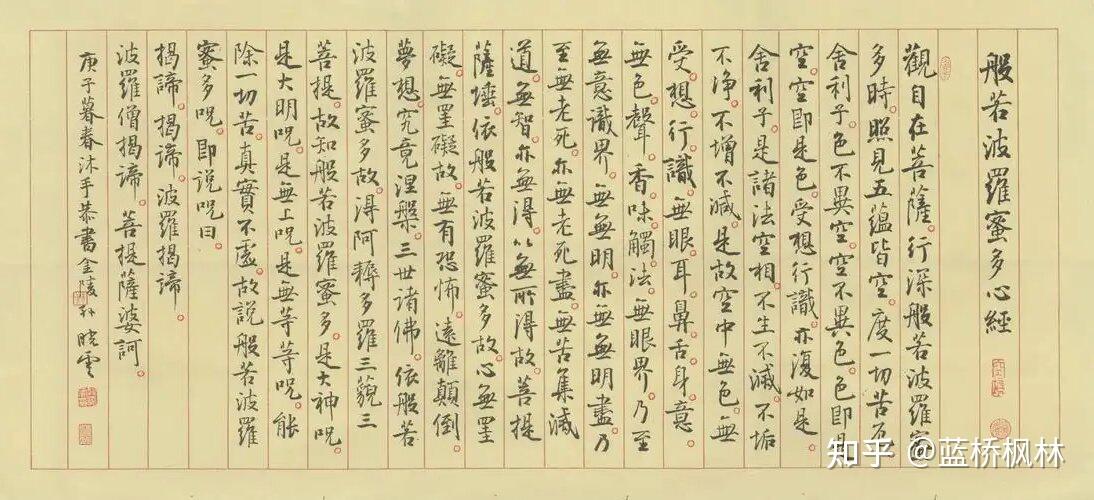 般若波羅蜜多心經
觀自在菩薩。行深般若波羅蜜
多時。照見五蘊皆空。度一切苦厄。
舍利子。色不異空。空不異色。色即是
空。空即是色。受想行識。亦復如是。
舍利子。是諸法空相。不生不滅。不垢
不淨。不增不減。是故空中無色。無
受。想。行。識。無眼耳鼻舌身意。
無色。聲。香。味。觸。法。無眼界。乃至
無意識界。無無明。亦無無明盡。乃
至無老死。亦無老死盡。無苦集滅
道。無智亦無得。以無所得故。菩提
薩埵。依般若波羅蜜多故。心無罣
礙。無罣礙故。無有恐怖。遠離顛倒
夢想。究竟涅槃。三世諸佛。依般若
波羅蜜多故。得阿耨多羅三藐三
菩提。故知般若波羅蜜多。是大神咒。
是大明咒。是無上咒。是無等等咒。能
除一切苦。真實不虛。故說般若波羅
蜜多咒。即說咒曰。
揭諦。揭諦。波羅揭諦。
波羅僧揭諦。菩提薩婆訶。
庚子暮春沐手恭書金陵孫曉雲
知乎 @蓝桥枫林